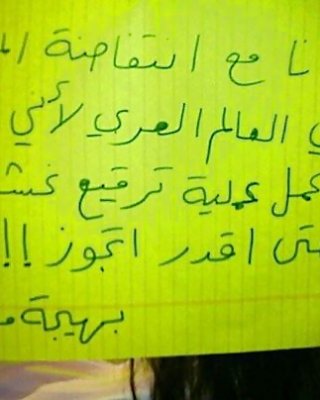 نا مع انتفاضة الم
ي العالم العربي لأني
عمل عملية ترقيع غش
تى اقدر اتجوز !!
بهيجة م